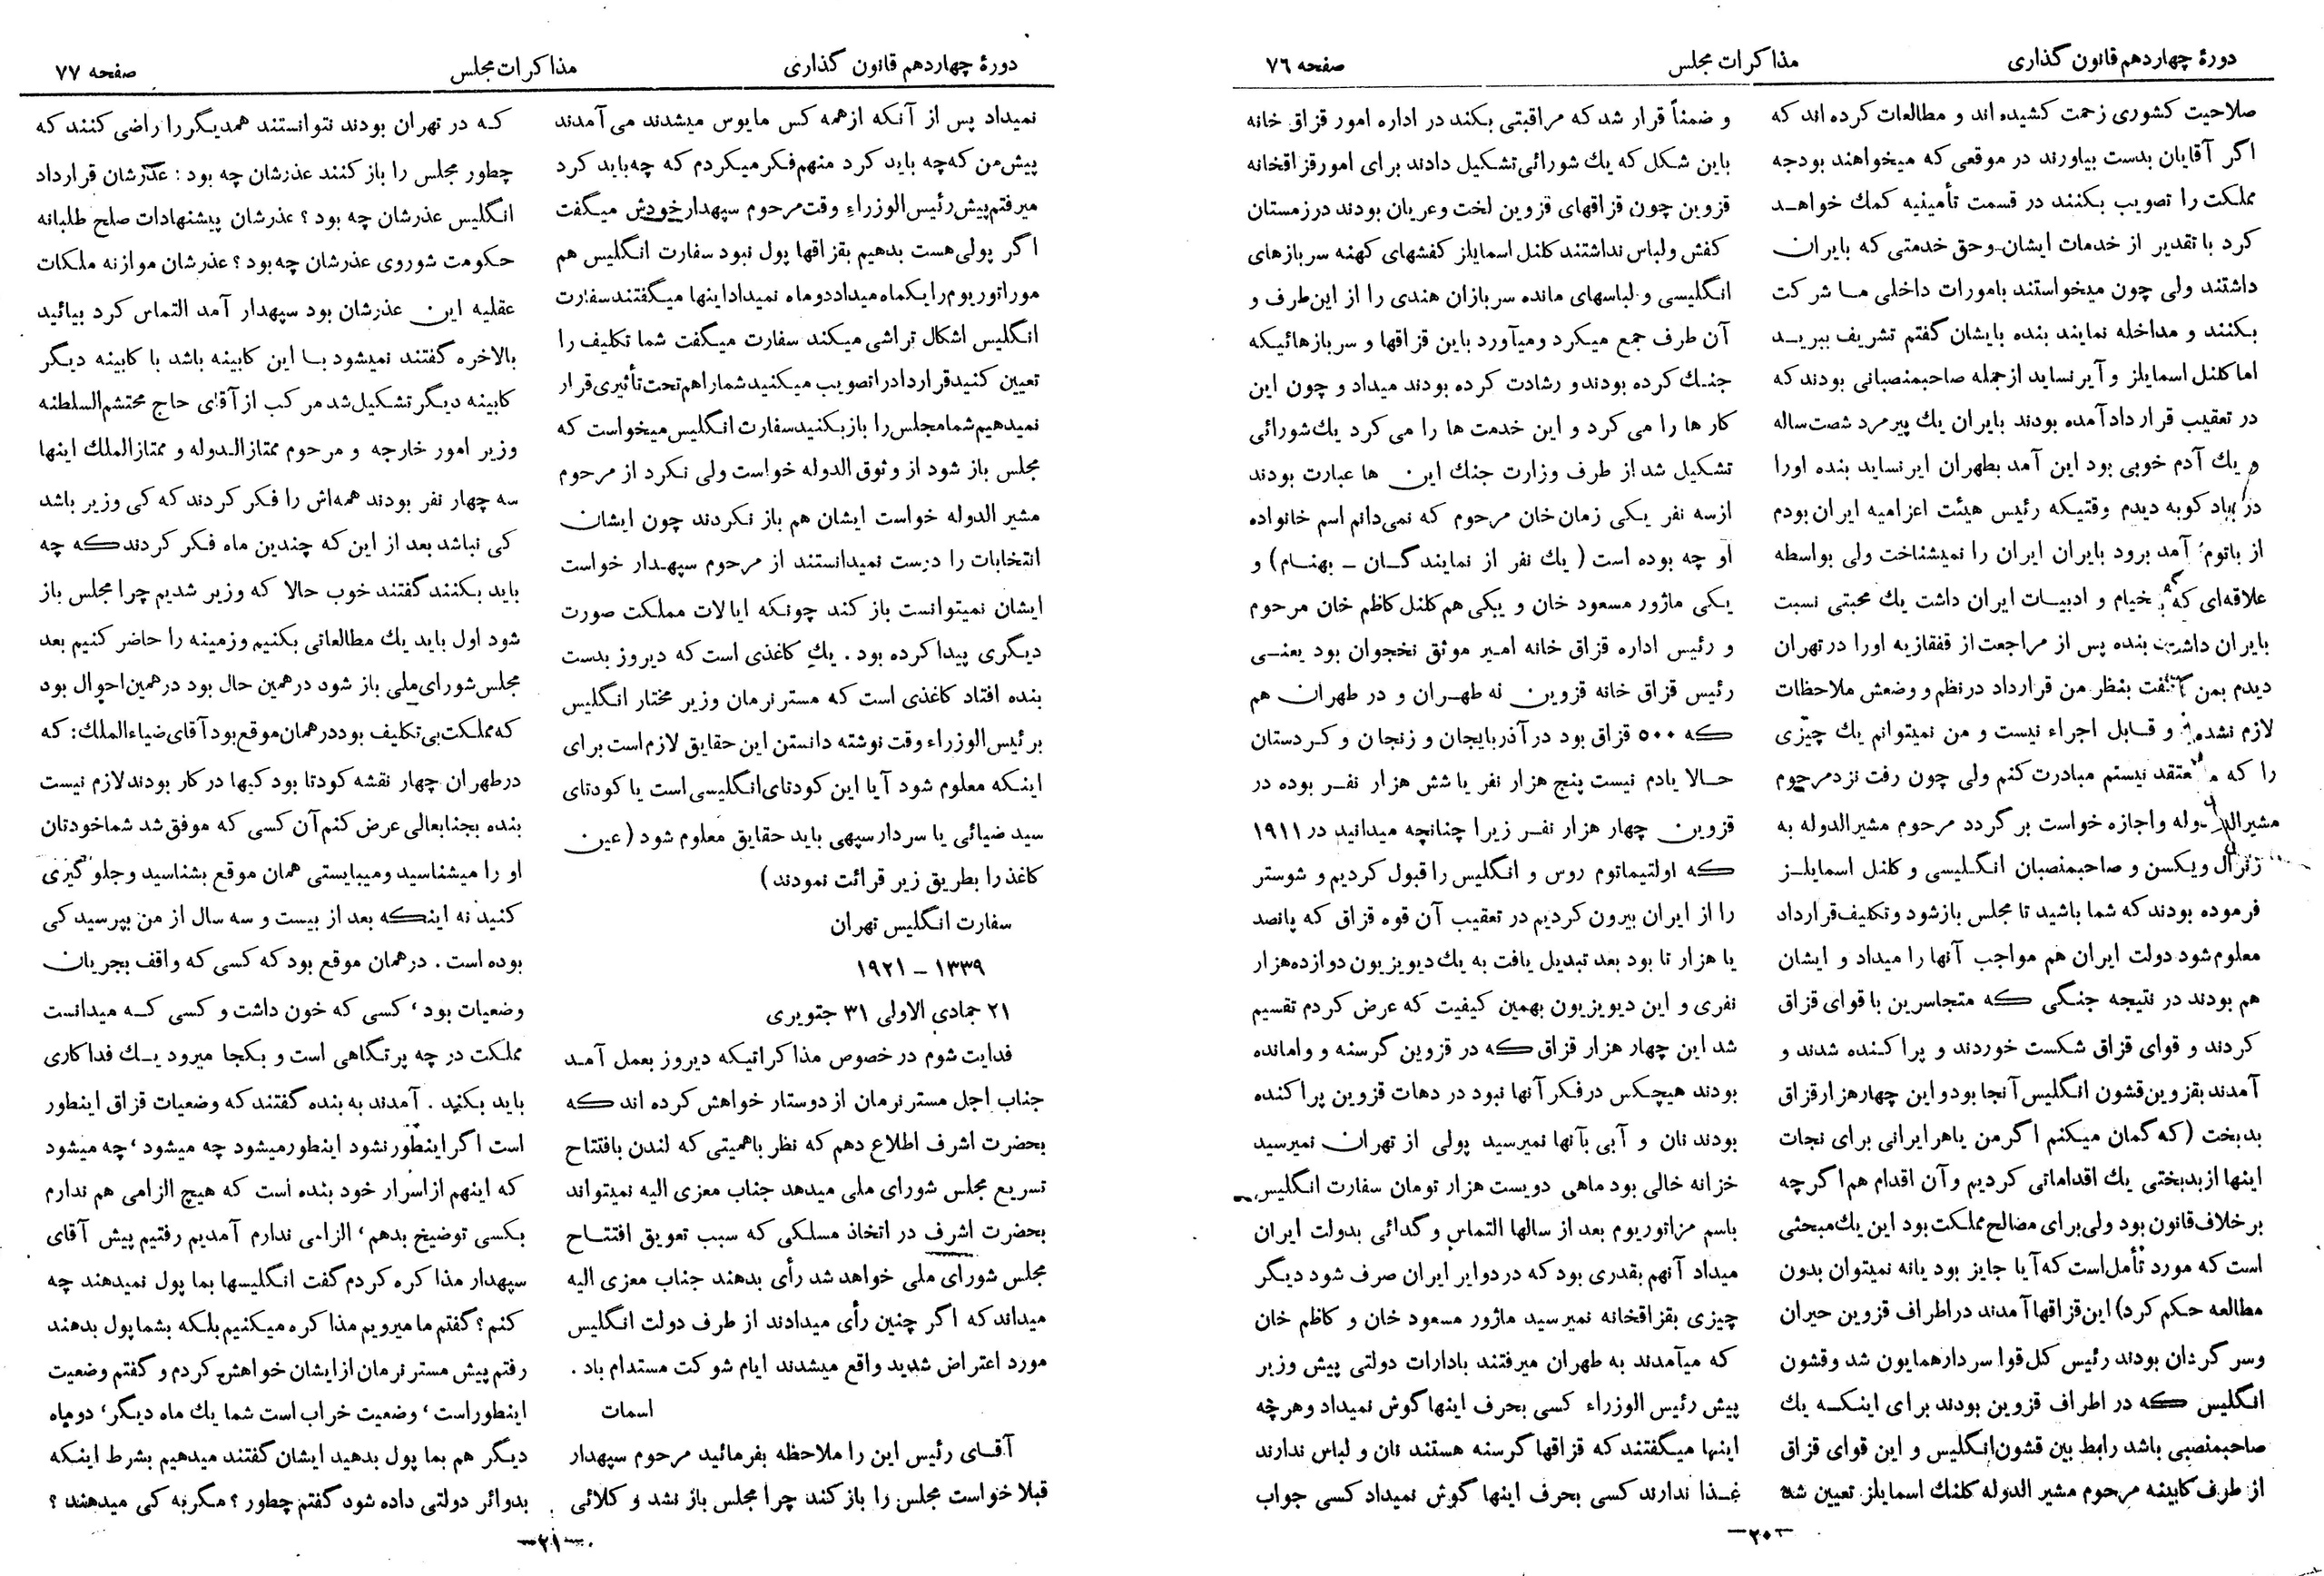 دورهٔ چهاردهم قانون گذاری
مذاکرات مجلس
صفحه ۷۶
صلاحیت کشوری زحمت کشیده‌اند و مطالعات کرده‌اند که
اگر آقایان بدست بیاورند در موقعی که میخواهند بودجه
مملکت را تصویب بکنند در قسمت تأمینیه کمک خواهد
کرد با تقدیر از خدمات ایشان وحق خدمتی که بایران
داشتند ولی چون میخواستند بامورات داخلی ما شرکت
بکنند و مداخله نمایند بنده بایشان گفتم تشریف ببرید
اما کلنل اسمایلز و آیرنساید ازجمله صاحبمنصبانی بودند که
در تعقیب قرارداد آمده بودند بایران یك پیرمرد شصت ساله
و یك آدم خوبی بود این آمد بطهران ایرنساید بنده اورا
در بادکوبه دیدم وقتیکه رئیس هیئت اعزامیه ایران بودم
از باتوم آمد برود بایران ایران را نمیشناخت ولی بواسطه
علاقه‌ای که به خیام و ادبیات ایران داشت یك محبتی نسبت
بایران داشت بنده پس از مراجعت از قفقازیه اورا در تهران
دیدم بمن گفت بنظر من قرارداد در نظم و وضعش ملاحظات
لازم نشده و قابل اجراء نیست و من نمیتوانم یك چیزی
را که معتقد نیستم مبادرت کنم ولی چون رفت نزد مرحوم
مشیرالدوله واجازه خواست برگردد مرحوم مشیرالدوله به
ژنرال ویکسن و صاحبمنصبان انگلیسی و کلنل اسمایلز
فرموده بودند که شما باشید تا مجلس بازشود و تکلیف قرارداد
معلوم شود دولت ایران هم مواجب آنها را میداد و ایشان
هم بودند در نتیجه جنگی که متجاسرین با قوای قزاق
کردند و قوای قزاق شکست خوردند و پراکنده شدند و
آمدند بقزوین قشون انگلیس آنجا بود و این چهار هزار قزاق
بدبخت (که گمان میکنم اگر من یا هر ایرانی برای نجات
اینها از بدبختی یك اقداماتی کردیم و آن اقدام هم اگرچه
برخلاف قانون بود ولی برای مصالح مملکت بود این یك مبحثی
است که مورد تأمل است که آیا جایز بود یانه نمیتوان بدون
مطالعه حکم کرد) این قزاقها آمدند در اطراف قزوین حیران
وسرگردان بودند رئیس کل قوا سردار همایون شد و قشون
انگلیس که در اطراف قزوین بودند برای اینکه یك
صاحبمنصبی باشد رابط بین قشون انگلیس و این قوای قزاق
از طرف کابینه مرحوم مشیر الدوله کلنل اسمایلز تعیین شد
و ضمناً قرار شد که مراقبتی بکند در اداره امور قزاق خانه
باین شکل که یك شورائی تشکیل دادند برای امور قزاقخانه
قزوین چون قزاقهای قزوین لخت و عریان بودند در زمستان
کفش ولباس نداشتند کلنل اسمایلز کفشهای کهنه سربازهای
انگلیسی و لباسهای مانده سربازان هندی را از این طرف و
آن طرف جمع میکرد ومیآورد باین قزاقها و سربازهائیکه
جنك کرده بودند و رشادت کرده بودند میداد و چون این
کار ها را می کرد و این خدمت ها را می کرد یك شورائی
تشکیل شد از طرف وزارت جنك این ها عبارت بودند
ازسه نفر یکی زمان خان مرحوم که نمی‌دانم اسم خانواده
او چه بوده است ( یك نفر از نمایندگان ـ بهنام) و
یکی ماژور مسعود خان و یکی هم کلنل کاظم خان مرحوم
و رئیس اداره قزاق خانه امیر موثق نخجوان بود یعنی
رئیس قزاق خانه قزوین نه طهران و در طهران هم
که ۵۰۰ قزاق بود در آذربایجان و زنجان و کردستان
حالا یادم نیست پنج هزار نفر یا شش هزار نفر بوده در
قزوین چهار هزار نفر زیرا چنانچه میدانید در ۱۹۱۱
که اولتیماتوم روس و انگلیس را قبول کردیم و شوستر
را از ایران بیرون کردیم در تعقیب آن قوه قزاق که پانصد
یا هزار تا بود بعد تبدیل یافت به یك دیویزیون دوازده هزار
نفری و این دیویزیون بهمین کیفیت که عرض کردم تقسیم
شد این چهار هزار قزاق که در قزوین گرسنه و وامانده
بودند هیچکس در فکر آنها نبود در دهات قزوین پراکنده
بودند نان و آبی بآنها نمیرسید پولی از تهران نمیرسید
خزانه خالی بود ماهی دویست هزار تومان سفارت انگلیس
باسم مراتوریوم بعد از سالها التماس و گدائی بدولت ایران
میداد آنهم بقدری بود که در دوایر ایران صرف شود دیگر
چیزی بقزاقخانه نمیرسید ماژور مسعود خان و کاظم خان
که میآمدند به طهران میرفتند بادارات دولتی پیش وزیر
پیش رئیس الوزراء کسی بحرف اینها گوش نمیداد وهرچه
اینها میگفتند که قزاقها گرسنه هستند نان و لباس ندارند
غذا ندارند کسی بحرف اینها گوش نمیداد کسی جواب
ـ۲۰ـ
دورهٔ چهاردهم قانون گذاری
مذاکرات مجلس
صفحه ۷۷
نمیداد پس از آنکه ازهمه کس مایوس میشدند می‌آمدند
پیش من که چه باید کرد منهم فکر میکردم که چه باید کرد
میرفتم پیش رئیس الوزراء وقت مرحوم سپهدار خودش میگفت
اگر پولی هست بدهیم بقزاقها پول نبود سفارت انگلیس هم
موراتوریوم را یکماه میداد دو ماه نمیداد اینها میگفتند سفارت
انگلیس اشکال تراشی میکند سفارت میگفت شما تکلیف را
تعیین کنید قرارداد را تصویب میکنید شما را هم تحت تأثیری قرار
نمیدهیم شما مجلس را باز بکنید سفارت انگلیس میخواست که
مجلس باز شود از وثوق الدوله خواست ولی نکرد از مرحوم
مشیر الدوله خواست ایشان هم باز نکردند چون ایشان
انتخابات را درست نمیدانستند از مرحوم سپهدار خواست
ایشان نمیتوانست باز کند چونکه ایالات مملکت صورت
دیگری پیدا کرده بود. یك کاغذی است که دیروز بدست
بنده افتاد کاغذی است که مستر نرمان وزیر مختار انگلیس
برئیس الوزراء وقت نوشته دانستن این حقایق لازم است برای
اینکه معلوم شود آیا این کودتای انگلیسی است یا کودتای
سید ضیائی یا سردار سپهی باید حقایق معلوم شود (عین
کاغذ را بطریق زیر قرائت نمودند)
سفارت انگلیس تهران
۱۳۳۹ ـ ۱۹۲۱
۲۱ جمادی الاولی ۳۱ جنویری
فدایت شوم در خصوص مذاکراتیکه دیروز بعمل آمد
جناب اجل مستر نرمان از دوستار خواهش کرده‌اند که
بحضرت اشرف اطلاع دهم که نظر باهمیتی که لندن بافتتاح
تسریع مجلس شورای ملی میدهد جناب معزی الیه نمیتواند
بحضرت اشرف در اتخاذ مسلکی که سبب تعویق افتتاح
مجلس شورای ملی خواهد شد رأی بدهند جناب معزی الیه
میداند که اگر چنین رأی میدادند از طرف دولت انگلیس
مورد اعتراض شدید واقع میشدند ایام شوکت مستدام باد.
اسمات
آقای رئیس این را ملاحظه بفرمائید مرحوم سپهدار
قبلا خواست مجلس را باز کند چرا مجلس باز نشد و کلائی
که در تهران بودند نتوانستند همدیگر را راضی کنند که
چطور مجلس را باز کنند عذرشان چه بود: عذرشان قرارداد
انگلیس عذرشان چه بود؟ عذرشان پیشنهادات صلح طلبانه
حکومت شوروی عذرشان چه بود؟ عذرشان موازنه ملکات
عقلیه این عذرشان بود سپهدار آمد التماس کرد بیائید
بالاخره گفتند نمیشود با این کابینه باشد با کابینه دیگر
کابینه دیگر تشکیل شد مرکب از آقای حاج محتشم السلطنه
وزیر امور خارجه و مرحوم ممتازالدوله و ممتازالملك اینها
سه چهار نفر بودند همه‌اش را فکر کردند که کی وزیر باشد
کی نباشد بعد از این که چندین ماه فکر کردند که چه
باید بکنند گفتند خوب حالا که وزیر شدیم چرا مجلس باز
شود اول باید یك مطالعاتی بکنیم و زمینه را حاضر کنیم بعد
مجلس شورای ملی باز شود درهمین حال بود درهمین احوال بود
که مملکت بی تکلیف بود در همان موقع بود آقای ضیاءالملك: که
در طهران چهار نقشه کودتا بود کیها در کار بودند لازم نیست
بنده بجنابعالی عرض کنم آن کسی که موفق شد شما خودتان
او را میشناسید ومیبایستی همان موقع بشناسید و جلوگیری
کنید نه اینکه بعد از بیست و سه سال از من بپرسید کی
بوده است. درهمان موقع بود که کسی که واقف بجریان
وضعیات بود، کسی که خون داشت و کسی که میدانست
مملکت در چه پرتگاهی است و بکجا میرود یك فداکاری
باید بکند. آمدند به بنده گفتند که وضعیات قزاق اینطور
است اگر اینطور نشود اینطور میشود چه میشود، چه میشود
که اینهم از اسرار خود بنده است که هیچ الزامی هم ندارم
بکسی توضیح بدهم، الزامی ندارم آمدیم رفتیم پیش آقای
سپهدار مذاکره کردم گفت انگلیسها بما پول نمیدهند چه
کنم؟ گفتم ما میرویم مذاکره میکنیم بلکه بشما پول بدهند
رفتم پیش مستر نرمان از ایشان خواهش کردم و گفتم وضعیت
اینطور است، وضعیت خراب است شما یك ماه دیگر، دو ماه
دیگر هم بما پول بدهید ایشان گفتند میدهیم بشرط اینکه
بدوائر دولتی داده شود گفتم چطور؟ مگر به کی میدهند؟
ـ۲۱ـ